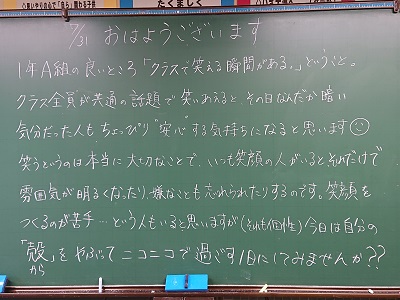 たくましく
7/31 おはようございます
1年A組の良いところ「クラスで笑える瞬間がある。」ということ。
クラス全員が共通の話題で笑いあえると、その日なんだか暗い
気分だった人もちょっぴり"安心"する気持ちになると思います☺
笑うというのは本当に大切なことで、いつも笑顔の人がいるとそれだけで
雰囲気が明るくなったり、嫌なことも忘れられたりするのです。笑顔を
つくるのが苦手…という人もいると思いますが(それも個性)今日は自分の
「殻」をやぶってニコニコで過ごす1日にしてみませんか??
から